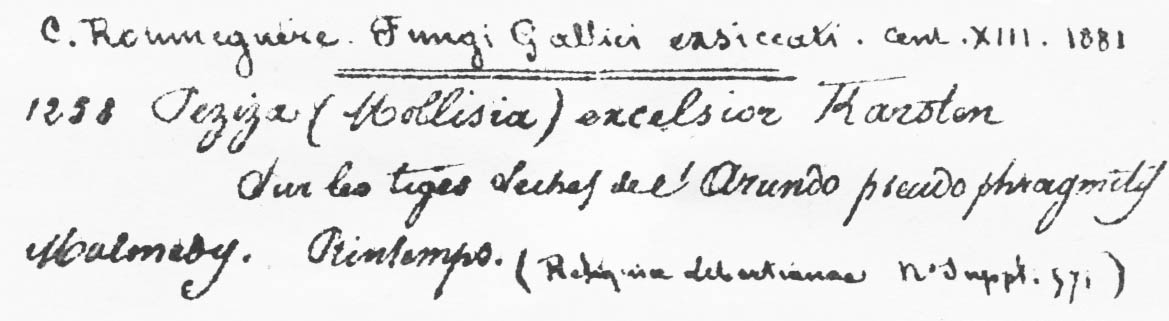 C. Roumeguère. Fungi Gallici exsiccati. Cent. XIII. 1881
1258 Peziza (Mollisia) excelsior Karsten
Sur les tiges seches de l' Arundo pseudophragmitis
Malmedy. Printemps. (Reliquiae Libertianae No Suppt. 571)